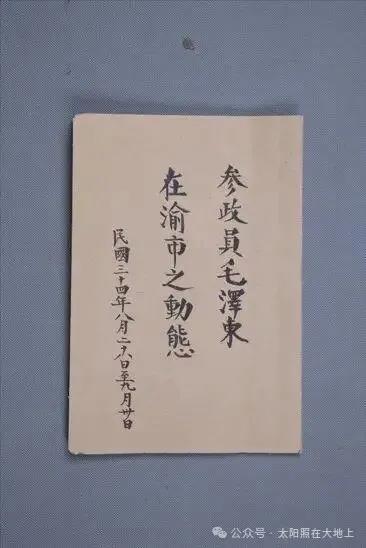 参政員毛澤東
在渝市之動態
民國三十四年八月二十八日至九月卅日
公众号·太阳照在大地上